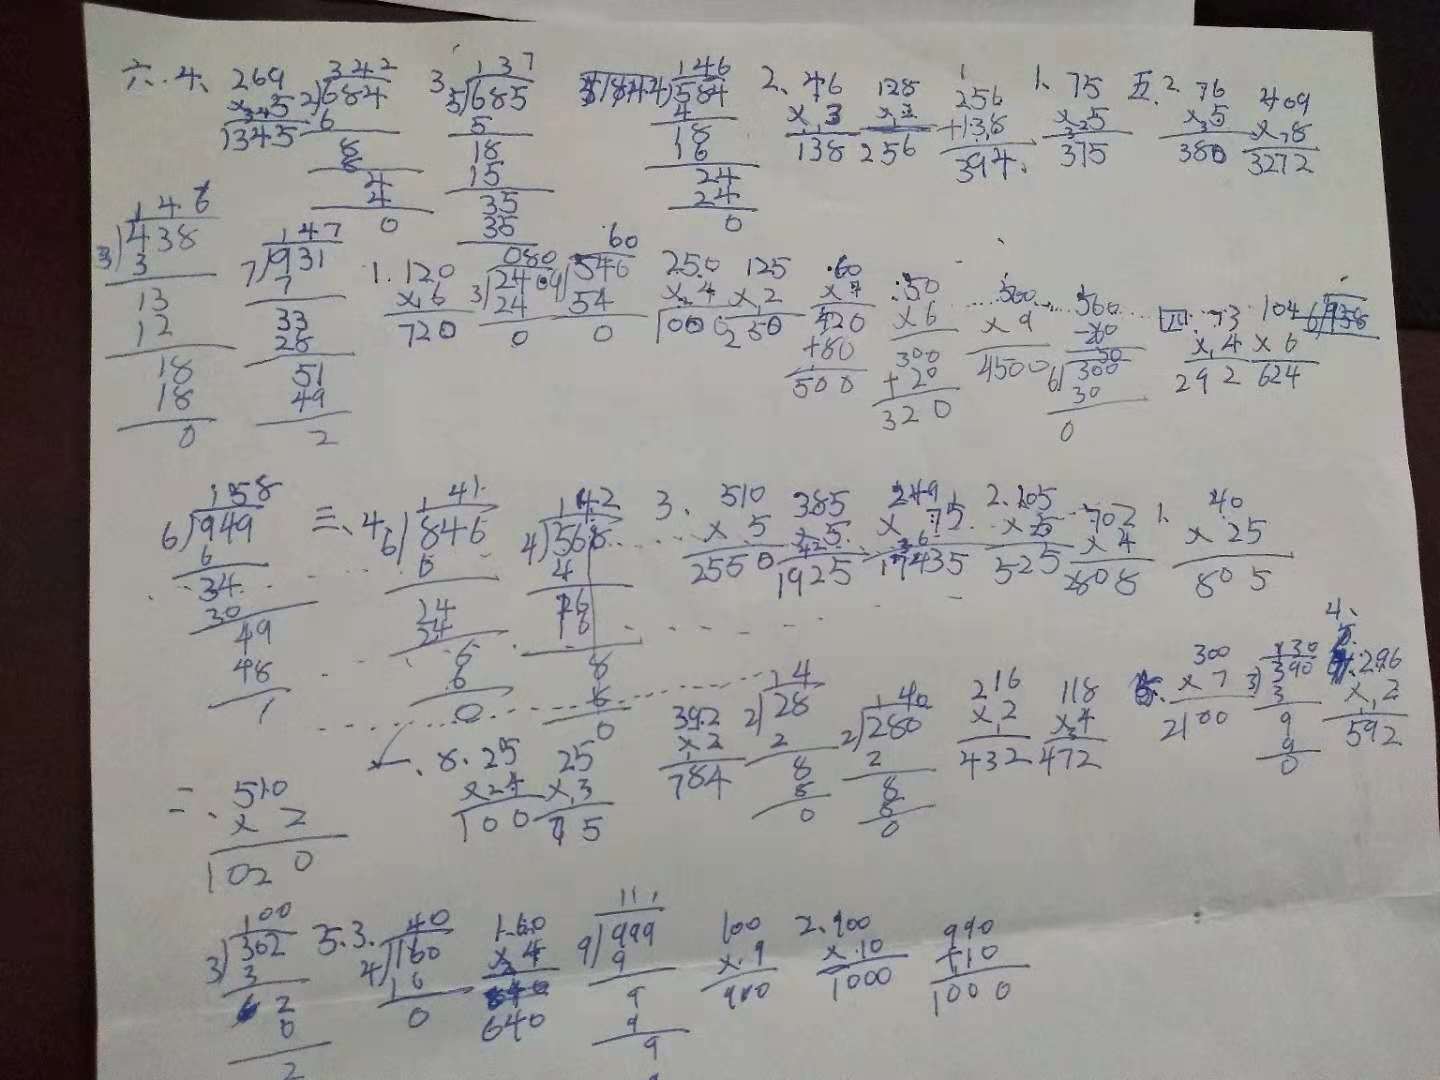 六、4、 269 342 3 137 146 2、46 128 256 1、75 五、2 76 409
×5 2)684 5)685 4)584 ×3 ×2 +138 ×5 ×5 ×8
1345 6 5 4 138 256 394 375 380 3272
8 18 18
8 15 16
4 35 24
4 35 24
0 0 0
146 147 1.120 080 60 250 125 60 50 500 560 四.73 104
3)438 7)931 ×6 3)240 9)540 ×4 ×2 ×7 ×6 ×9 ×4 ×6 6)938
3 7 720 24 54 1000 250 420 300 4500 292 624
13 33 0 0 +80 +20 50
12 28 500 320 6)300
18 51 30
18 49 0
0 2
158 三、4 141 142 3. 510 385 249 2.105 702 1. 40
6)949 6)846 4)568 × 5 ×5 × 75 ×5 ×4 ×25
6 6 4 2550 1925 17435 525 2808 805
34 24 16
30 24
49 6 8
48 6
1 0 0
14 140 216 118 300 130 4、
392 2)28 2)280 ×2 ×4 ×7 3)390 296
×2 2 2 432 472 2100 3 ×2
784 8 8 9 592
8 8 9
0 0 0
二、510 8.25 25
× 2 ×4 ×3
1020 100 75
100 5.3. 40 1.60 111 100 2.900 990
3)302 4)160 ×4 9)999 ×9 ×10 +10
3 16 640 9 900 1000 1000
2 0 9
0 9
2 9